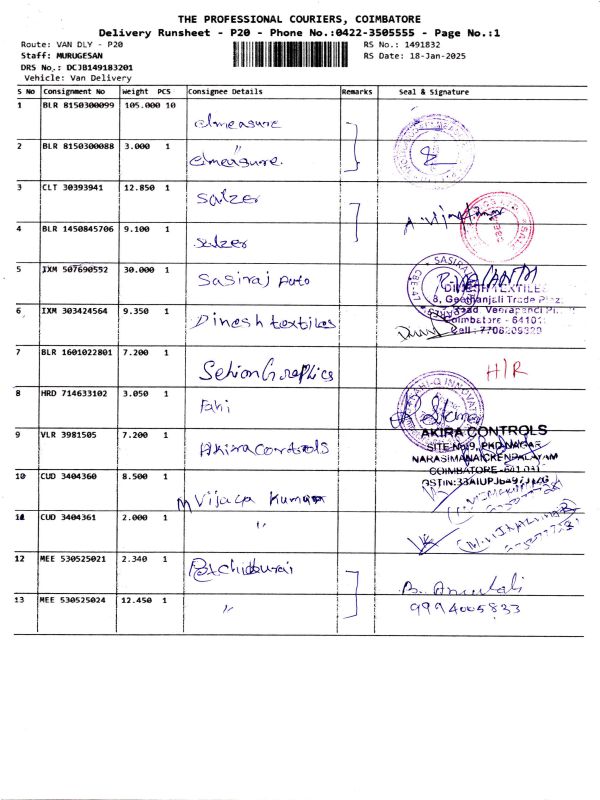 THE PROFESSIONAL COURIERS, COIMBATORE
Delivery Runsheet - P20 - Phone No.:0422-3505555 - Page No.:1
Route: VAN DLY - P20 RS No.: 1491832
Staff: MURUGESAN RS Date: 18-Jan-2025
DRS No.: DCJB149183201
Vehicle: Van Delivery
S No Consignment No Weight PCS Consignee Details Remarks Seal & Signature
1 BLR 8150300099 105.000 10 elmeasure
2 BLR 8150300088 3.000 1 elmeasure.
3 CLT 30393941 12.850 1 Salzer
4 BLR 1450845706 9.100 1 salzer
5 IXM 507690552 30.000 1 Sasiraj Auto
SASIRA
CBE-41
DINESH TEXTILES
8, Geethanjali Trade Plaz
6 IXM 303424564 9.350 1 Dinesh textiles
Road, Veerapandi
Coimbatore - 64101
Cell : 7708209329
7 BLR 1601022801 7.200 1 Graphics H/R
8 HRD 714633102 3.050 1
9 VLR 3981505 7.200 1 Akira controls
AKIRA CONTROLS
NARASIMANAICKENPALAYAM
COIMBATORE
10 CUD 3404360 8.500 1 M Vijaya Kumar
11 CUD 3404361 2.000 1 "
12 MEE 530525021 2.340 1
13 MEE 530525024 12.450 1 "
9994005833